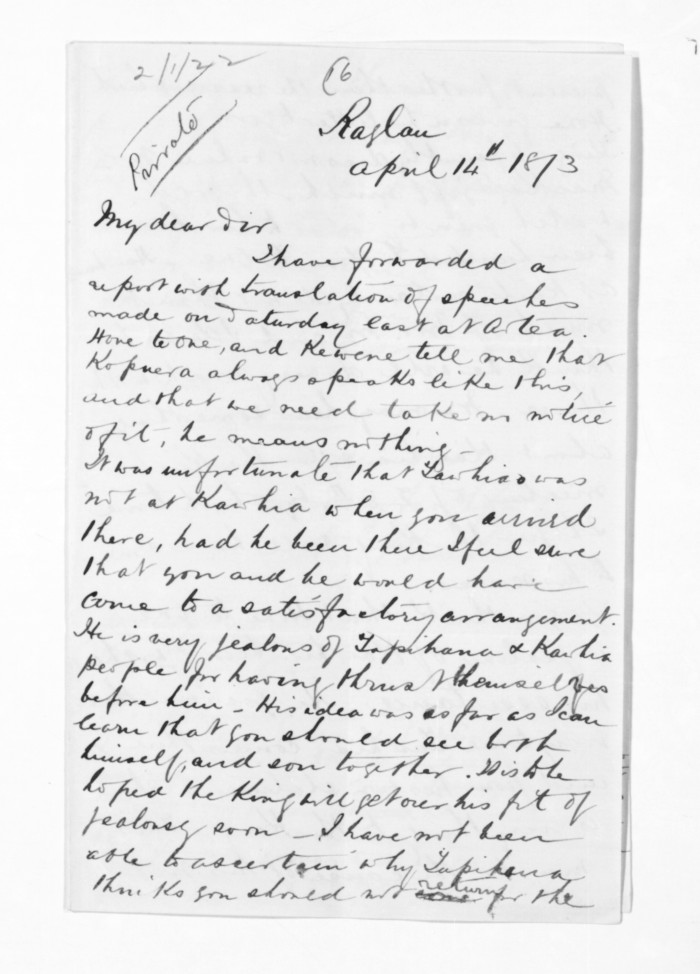 2/1/22
Private
Raglan
April 14th 1873
My dear Sir
I have forwarded a
report with translation of speeches
made on Saturday last at Aotea.
Hone te One, and Kewene tell me that
Kopuera always speaks like this,
and that we need take no notice
of it, he means nothing —
It was unfortunate that Tawhiao was
not at Kawhia when you arrived
there, had he been there I feel sure
that you and he would have
come to a satisfactory arrangement.
He is very jealous of Tapihana & Kawhia
people for having thrust themselves
before him — His idea was as far as I can
learn that you should see both
himself, and son together. It is to be
hoped the King will get over his fit of
jealousy soon — I have not been
able to ascertain why Tapihana
thinks you should not return for the